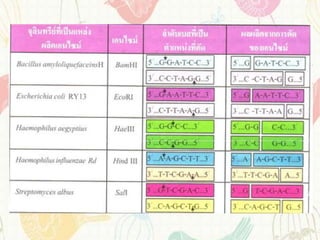 จุลินทรีย์ที่เป็นแหล่ง
ผลิตเอนไซม์
เอนไซม์
ลำดับเบสที่เป็น
ตำแหน่งที่ตัด
ผลผลิตจากการตัด
ของเอนไซม์
Bacillus amyloliquefaciensH
BamHI
5´...G-G-A-T-C-C...3´
3´...C-C-T-A-G-G...5´
5´...G
G-A-T-C-C...3´
3´...C -C-T-A-G
G...5´
Escherichia coli RY13
EcoRI
5´...G-A-A-T-T-C...3´
3´...C-T-T-A-A-G...5´
5´...G
A-A-T-T-C...3´
3´...C -T-T-A-A
G...5´
Haemophilus aegyptius
HaeIII
5´...G-G-C-C...3´
3´...C-C-G-G...5´
5´...G-G
C-C...3´
3´...C-C
G-G...5´
Haemophilus influenzae Rd
Hind III
5´...A-A-G-C-T-T...3´
3´...T-T-C-G-A-A...5´
5´...A
A-G-C-T-T...3´
3´...T-T-C-G-A
A...5´
Streptomyces albus
SalI
5´...G-T-C-G-A-C...3´
3´...C-A-G-C-T-G...5´
5´...G
T-C-G-A-C...3´
3´...C-A-G-C-T
G...5´